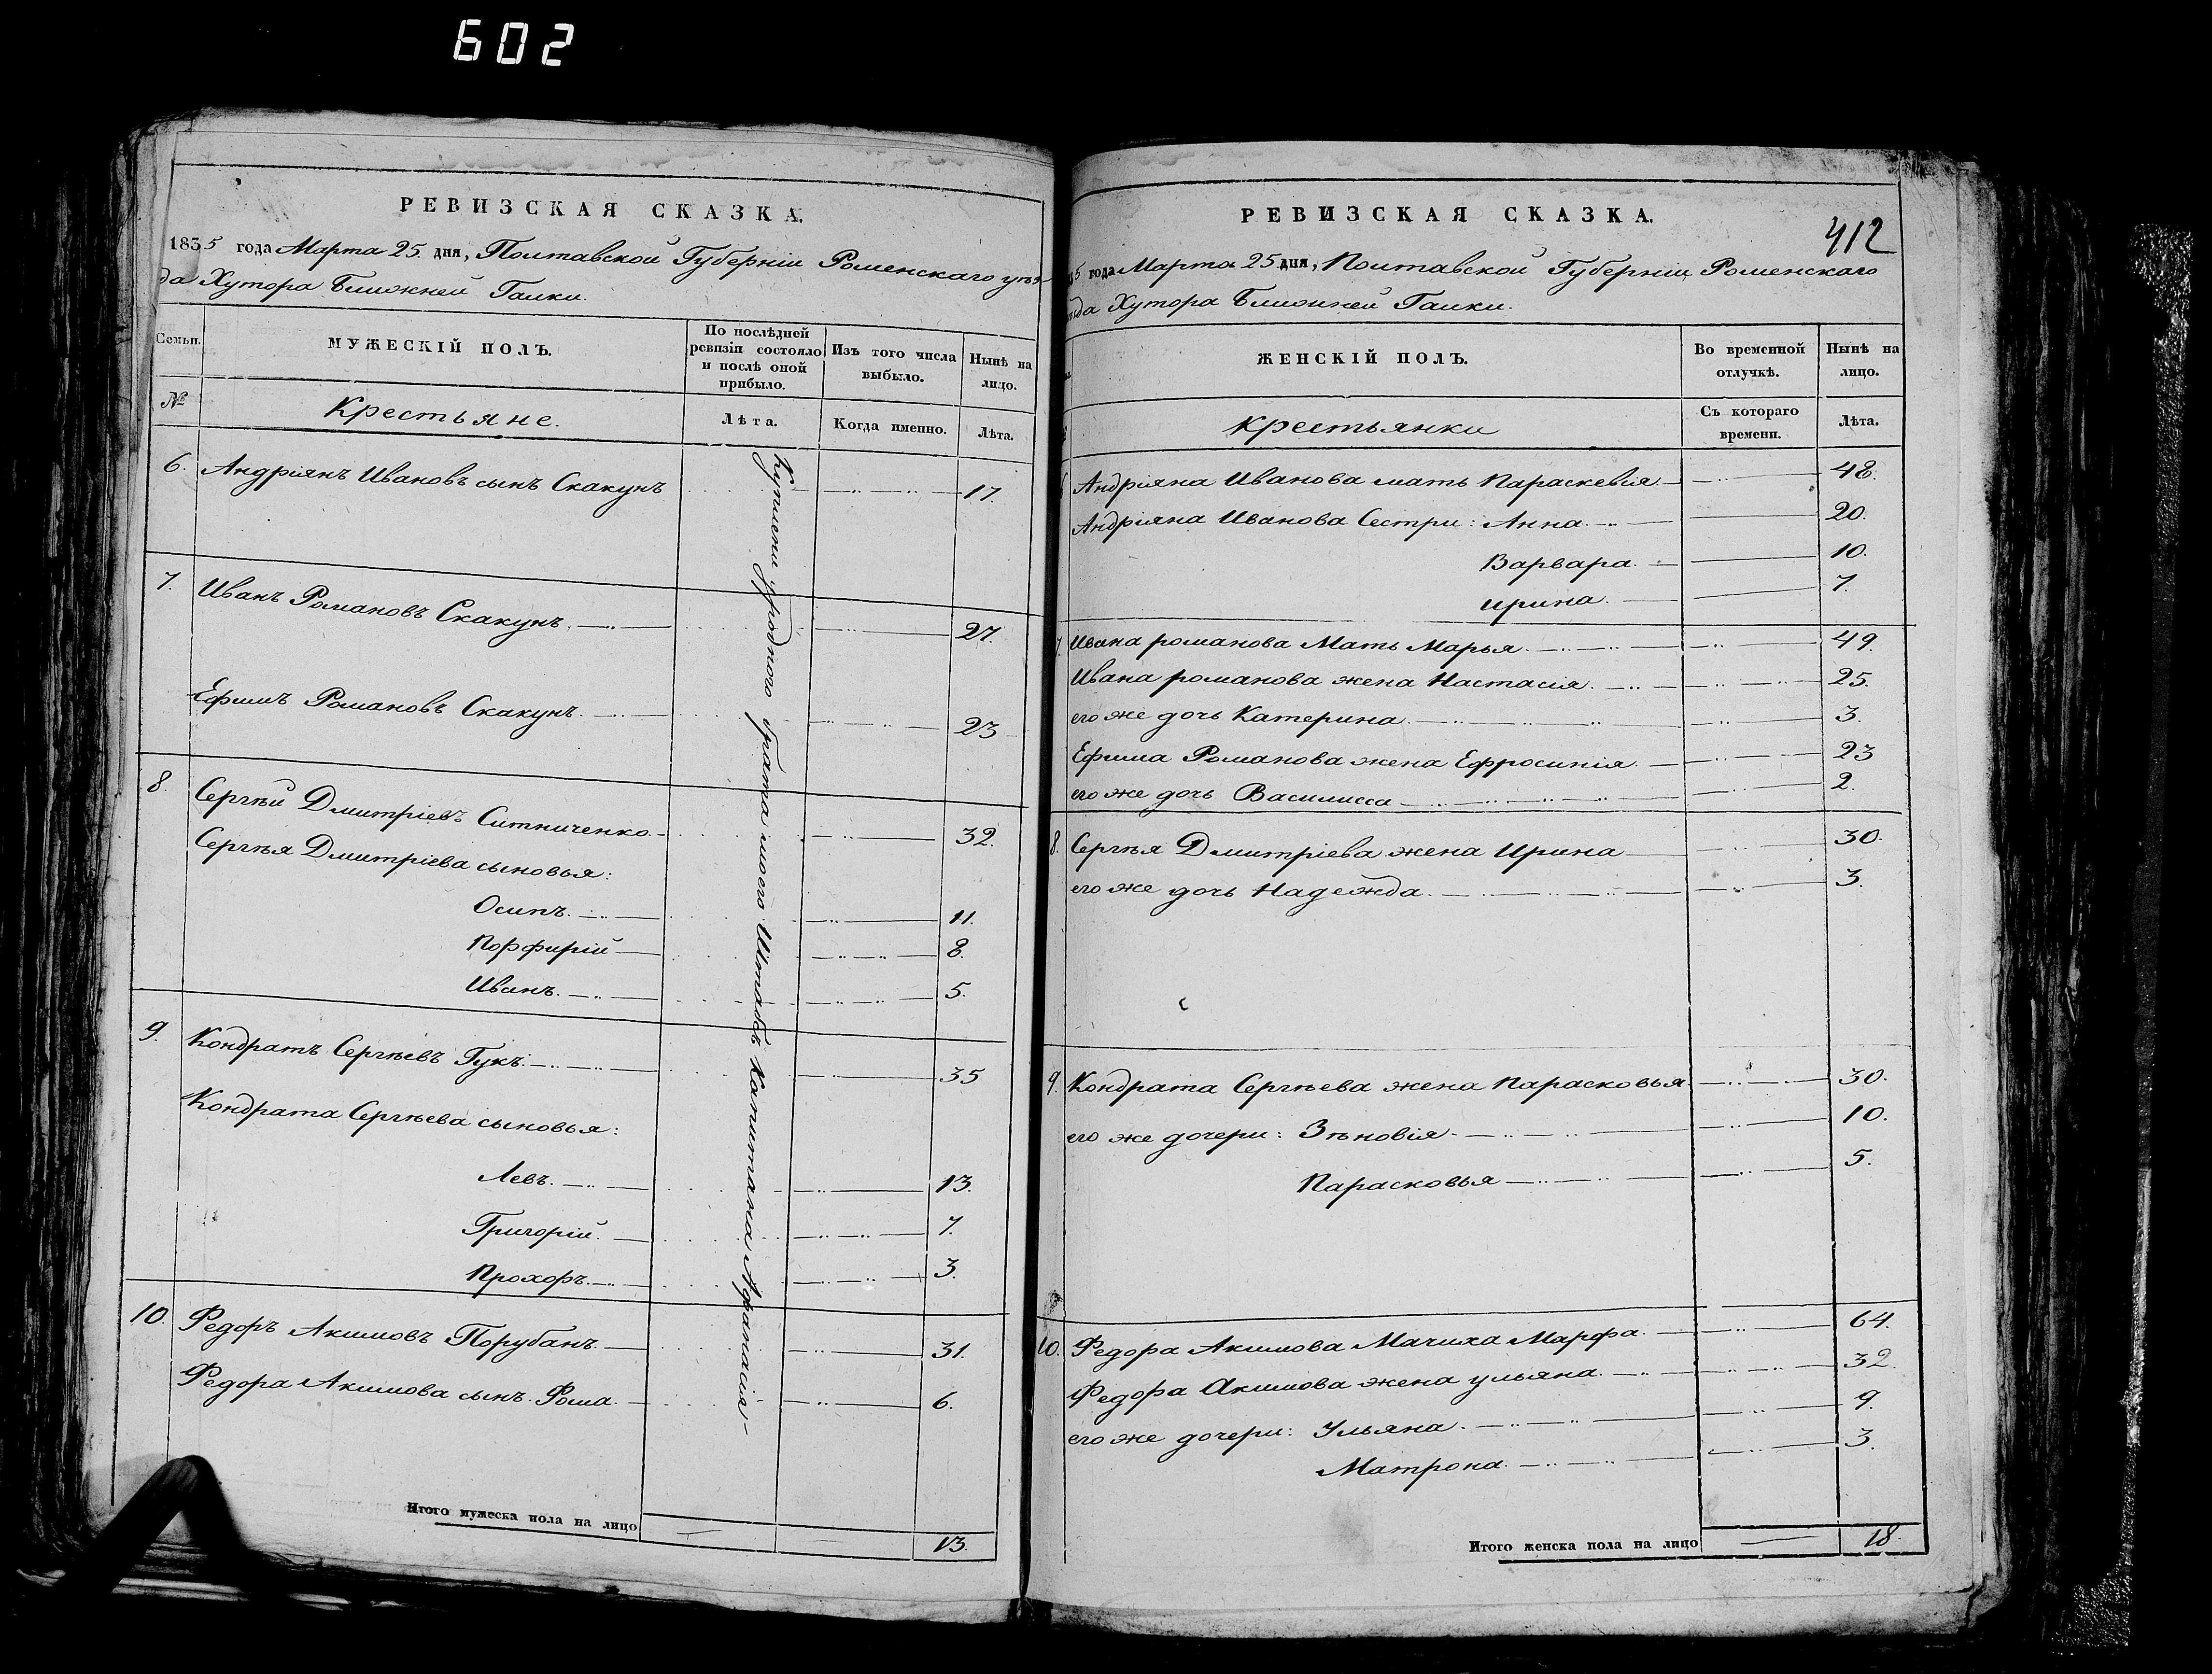 602
РЕВИЗСКАЯ СКАЗКА.
1835 года Марта 25. дня, Полтавской Губерніи Роменскаго уѣз-
да Хутора Ближней Галки.
Семьи.
МУЖЕСКІЙ ПОЛЪ.
По послѣдней ревизіи состояло и послѣ оной прибыло.
Изъ того числа выбыло.
Нынѣ на лицо.
№
Крестьяне.
Лѣта.
Когда именно.
Лѣта.
Куплены у роднаго брата моего Штабсъ Капитана Афанасія
6. Андріянъ Ивановъ сынъ Скакунъ 17.
7. Иванъ Романовъ Скакунъ. 27.
Ефимъ Романовъ Скакунъ. 23
8. Сергѣй Дмитріевъ Ситниченко 32.
Сергѣя Дмитріева сыновья:
Осипъ. 11.
Порфирій 8.
Иванъ. 5.
9. Кондратъ Сергѣевъ Гукъ. 35
Кондрата Сергѣева сыновья:
Левъ. 13.
Григорій. 7.
Прохоръ. 3.
10. Федоръ Акимовъ Порубанъ. 31.
Федора Акимова сынъ Фома. 6.
Итого мужеска пола на лицо 13.
412
РЕВИЗСКАЯ СКАЗКА.
35 года Марта 25 дня, Полтавской Губерніи Роменскаго
ѣзда Хутора Ближней Галки.
ЖЕНСКІЙ ПОЛЪ.
Во временной отлучкѣ.
Нынѣ на лицо.
Крестьянки
Съ котораго времени.
Лѣта.
6 Андріяна Иванова мать Параскевія. 48.
Андріяна Иванова Сестри: Анна. 20.
Варвара. 10.
Ирина. 7.
7. Ивана романова Мать Марья. 49.
Ивана романова жена Настасія. 25.
его же дочь Катерина. 3.
Ефима Романова жена Ефросинія. 23
его же дочь Василисса 2.
8. Сергѣя Дмитріева жена Ирина 30.
его же дочь Надежда. 3.
9. Кондрата Сергѣева жена Парасковья 30.
его же дочери: Зѣновія. 10.
Парасковья 5.
10. Федора Акимова Мачиха Марфа. 64.
Федора Акимова жена Ульяна. 32.
его же дочери: Ульяна. 9.
Матрона. 3.
Итого женска пола на лицо 18.